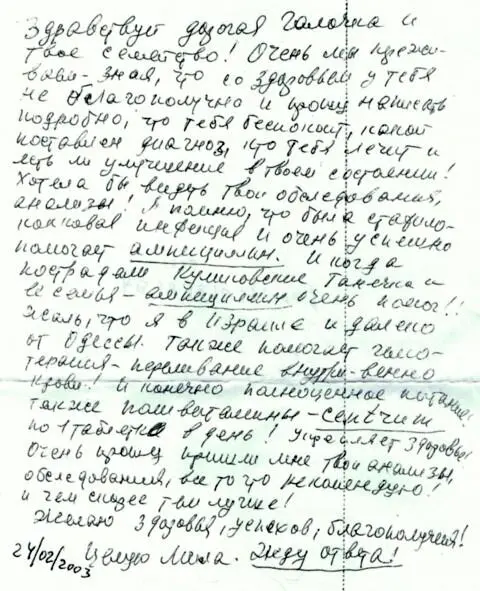 Здравствуй дорогая Галочка и
твое семейство! Очень мы пережи-
ваем - зная, что со здоровьем у тебя
не благополучно и прошу написать
подробно, что тебя беспокоит, какой
поставлен диагноз, кто тебя лечит и
есть ли улучшение в твоем состоянии!
Хотела бы видеть твои обследования,
анализы! Я помню, что была стафило-
кокковая инфекция и очень успешно
помогает ампициллин. И когда
пострадали Куликовские Танечка и
её семья - ампициллин очень помог!!
Жаль, что я в Израиле и далеко
от Одессы. Также помогает гемо-
терапия - переливание внутри-венно
крови! И конечно полноценное питание!
также поливитамины -
по 1 таблетке в день! Укрепляет здоровье!
Очень прошу пришли мне твои анализы,
обследования, все то что рекомендую!
и чем скорее тем лучше!
Желаю здоровья, успехов, благополучия!
24/02/2003 Целую Мила. Жду ответа!